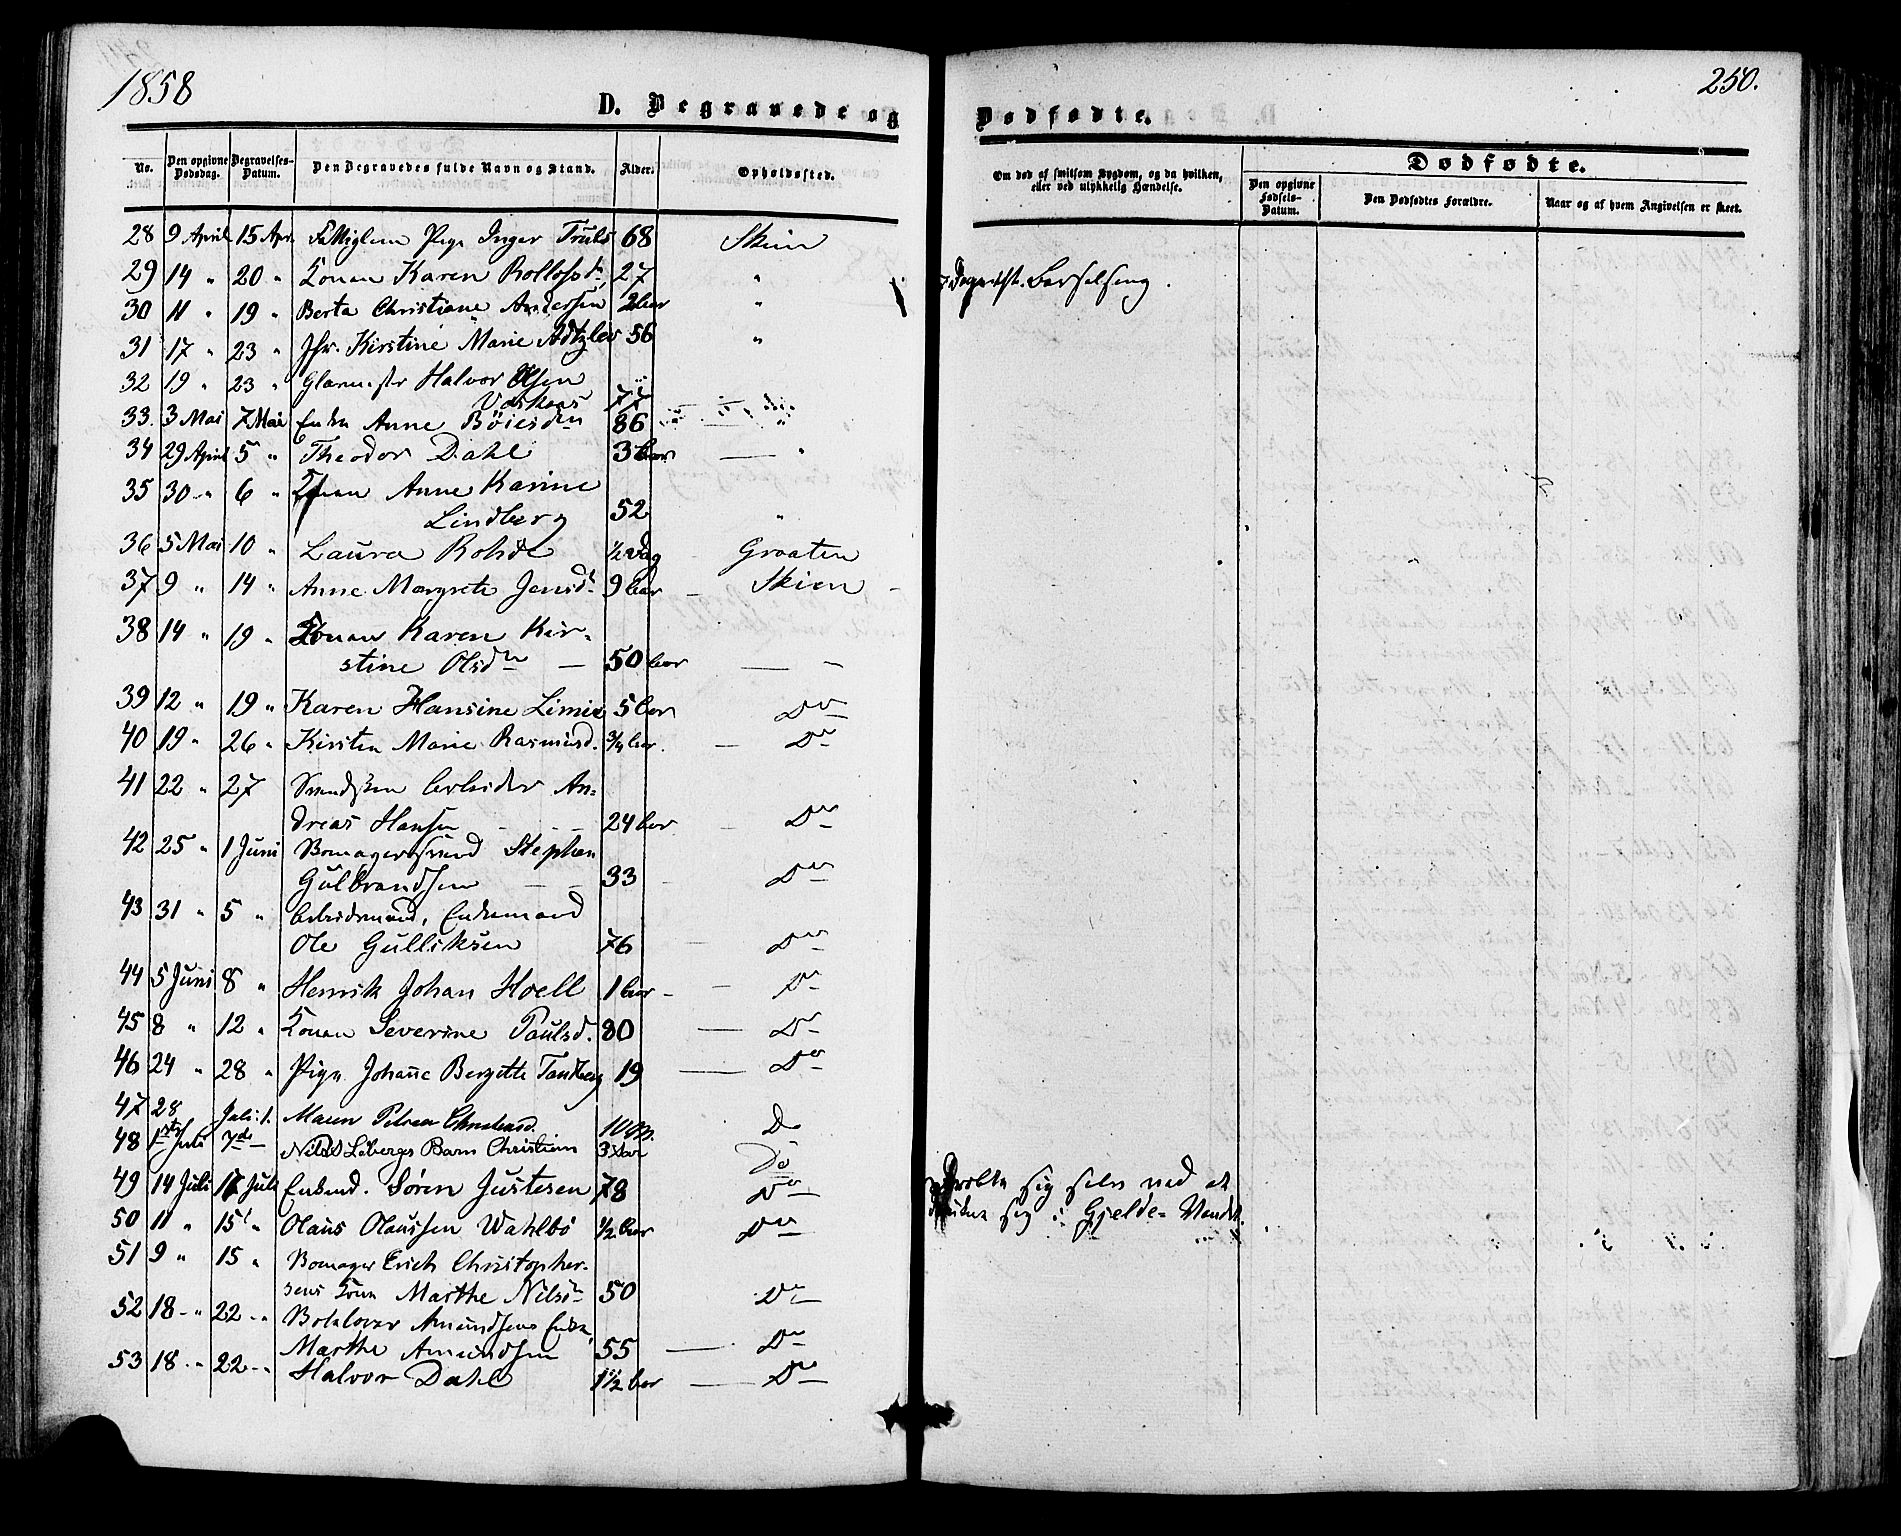 1858
250.
D. Begravede og
Dødfødte.
No.
Den opgivne Dødsdag.
Begravelses-Datum.
Den Begravedes fulde Navn og Stand.
Alder.
Opholdssted.
Om død af smitsom Sygdom, og da hvilken, eller ved ulykkelig Hændelse.
Dødfødte.
Den opgivne Fødsels-Datum.
Den Dødfødtes Forældre.
Naar og af hvem Angivelsen er skeet.
28 9 April 15 Apr. Pige Inger Truls 68 Skien
29 14 " 20 " Konen Karen Rollefsdr 27 " Barselseng.
30 11 " 19 " Berta Christiane Andersen 2 Aar "
31 17 " 23 " Jfr. Kirstine Marie 56 "
32 19 " 23 " Glarmester Halvor Olsen
77
33 3 Mai 7 Mai Enke Anne Bøiesdr 86 "
34 29 April 5 " Theodor Dahl 3 Aar "
35 30 " 6 " Konen Anne Karine
Lindberg 52 "
36 5 Mai 10 " Laura Rohde ½ Dag Graaten
37 9 " 14 " Anne Margrete Jensdr 9 Aar Skien
38 14 " 19 " Konen Karen Kir-
stine Olsdr 50 Aar "
39 12 " 19 " Karen Hansine Limie 5 Aar Do
40 19 " 26 " Kirsten Marie Rasmusd. ¾ Aar Do
41 22 " 27 Arbeider An-
dreas Hansen 24 Aar Do
42 25 " 1 Juni Bomagersvend Stephen
Gulbrandsen 33 Do
43 31 " 5 " Arbeidsmand, Enkemand
Ole Gulliksen 76 Do
44 5 Juni 8 " Henrik Johan Hoell 1 Aar Do
45 8 " 12 " Konen Severine Paulsd. 80 Do
46 24 " 28 " Pige Johanne Bergette Tandberg 19 Do
47 28 Juli 1. Maren Petrea 10 M. Do
48 1ste Juli 7de Nils Løbergs Barn Christian 3 Aar Do
49 14 Juli 17 Juli Enkmd. Søren Justesen 78 Do sig selv ved at
50 11 " 15 " Olaus Olaussen Wahlbø ½ Aar Do sig i Gjelde-Vandet.
51 9 " 15 " Bomager Erich Christopher-
sens Kone Marthe Nilsdr 50 Do
52 18 " 22 " Amundsens Enke,
Marthe Amundsen 55 Do
53 18 " 22 " Halvor Dahl 1½ Aar Do